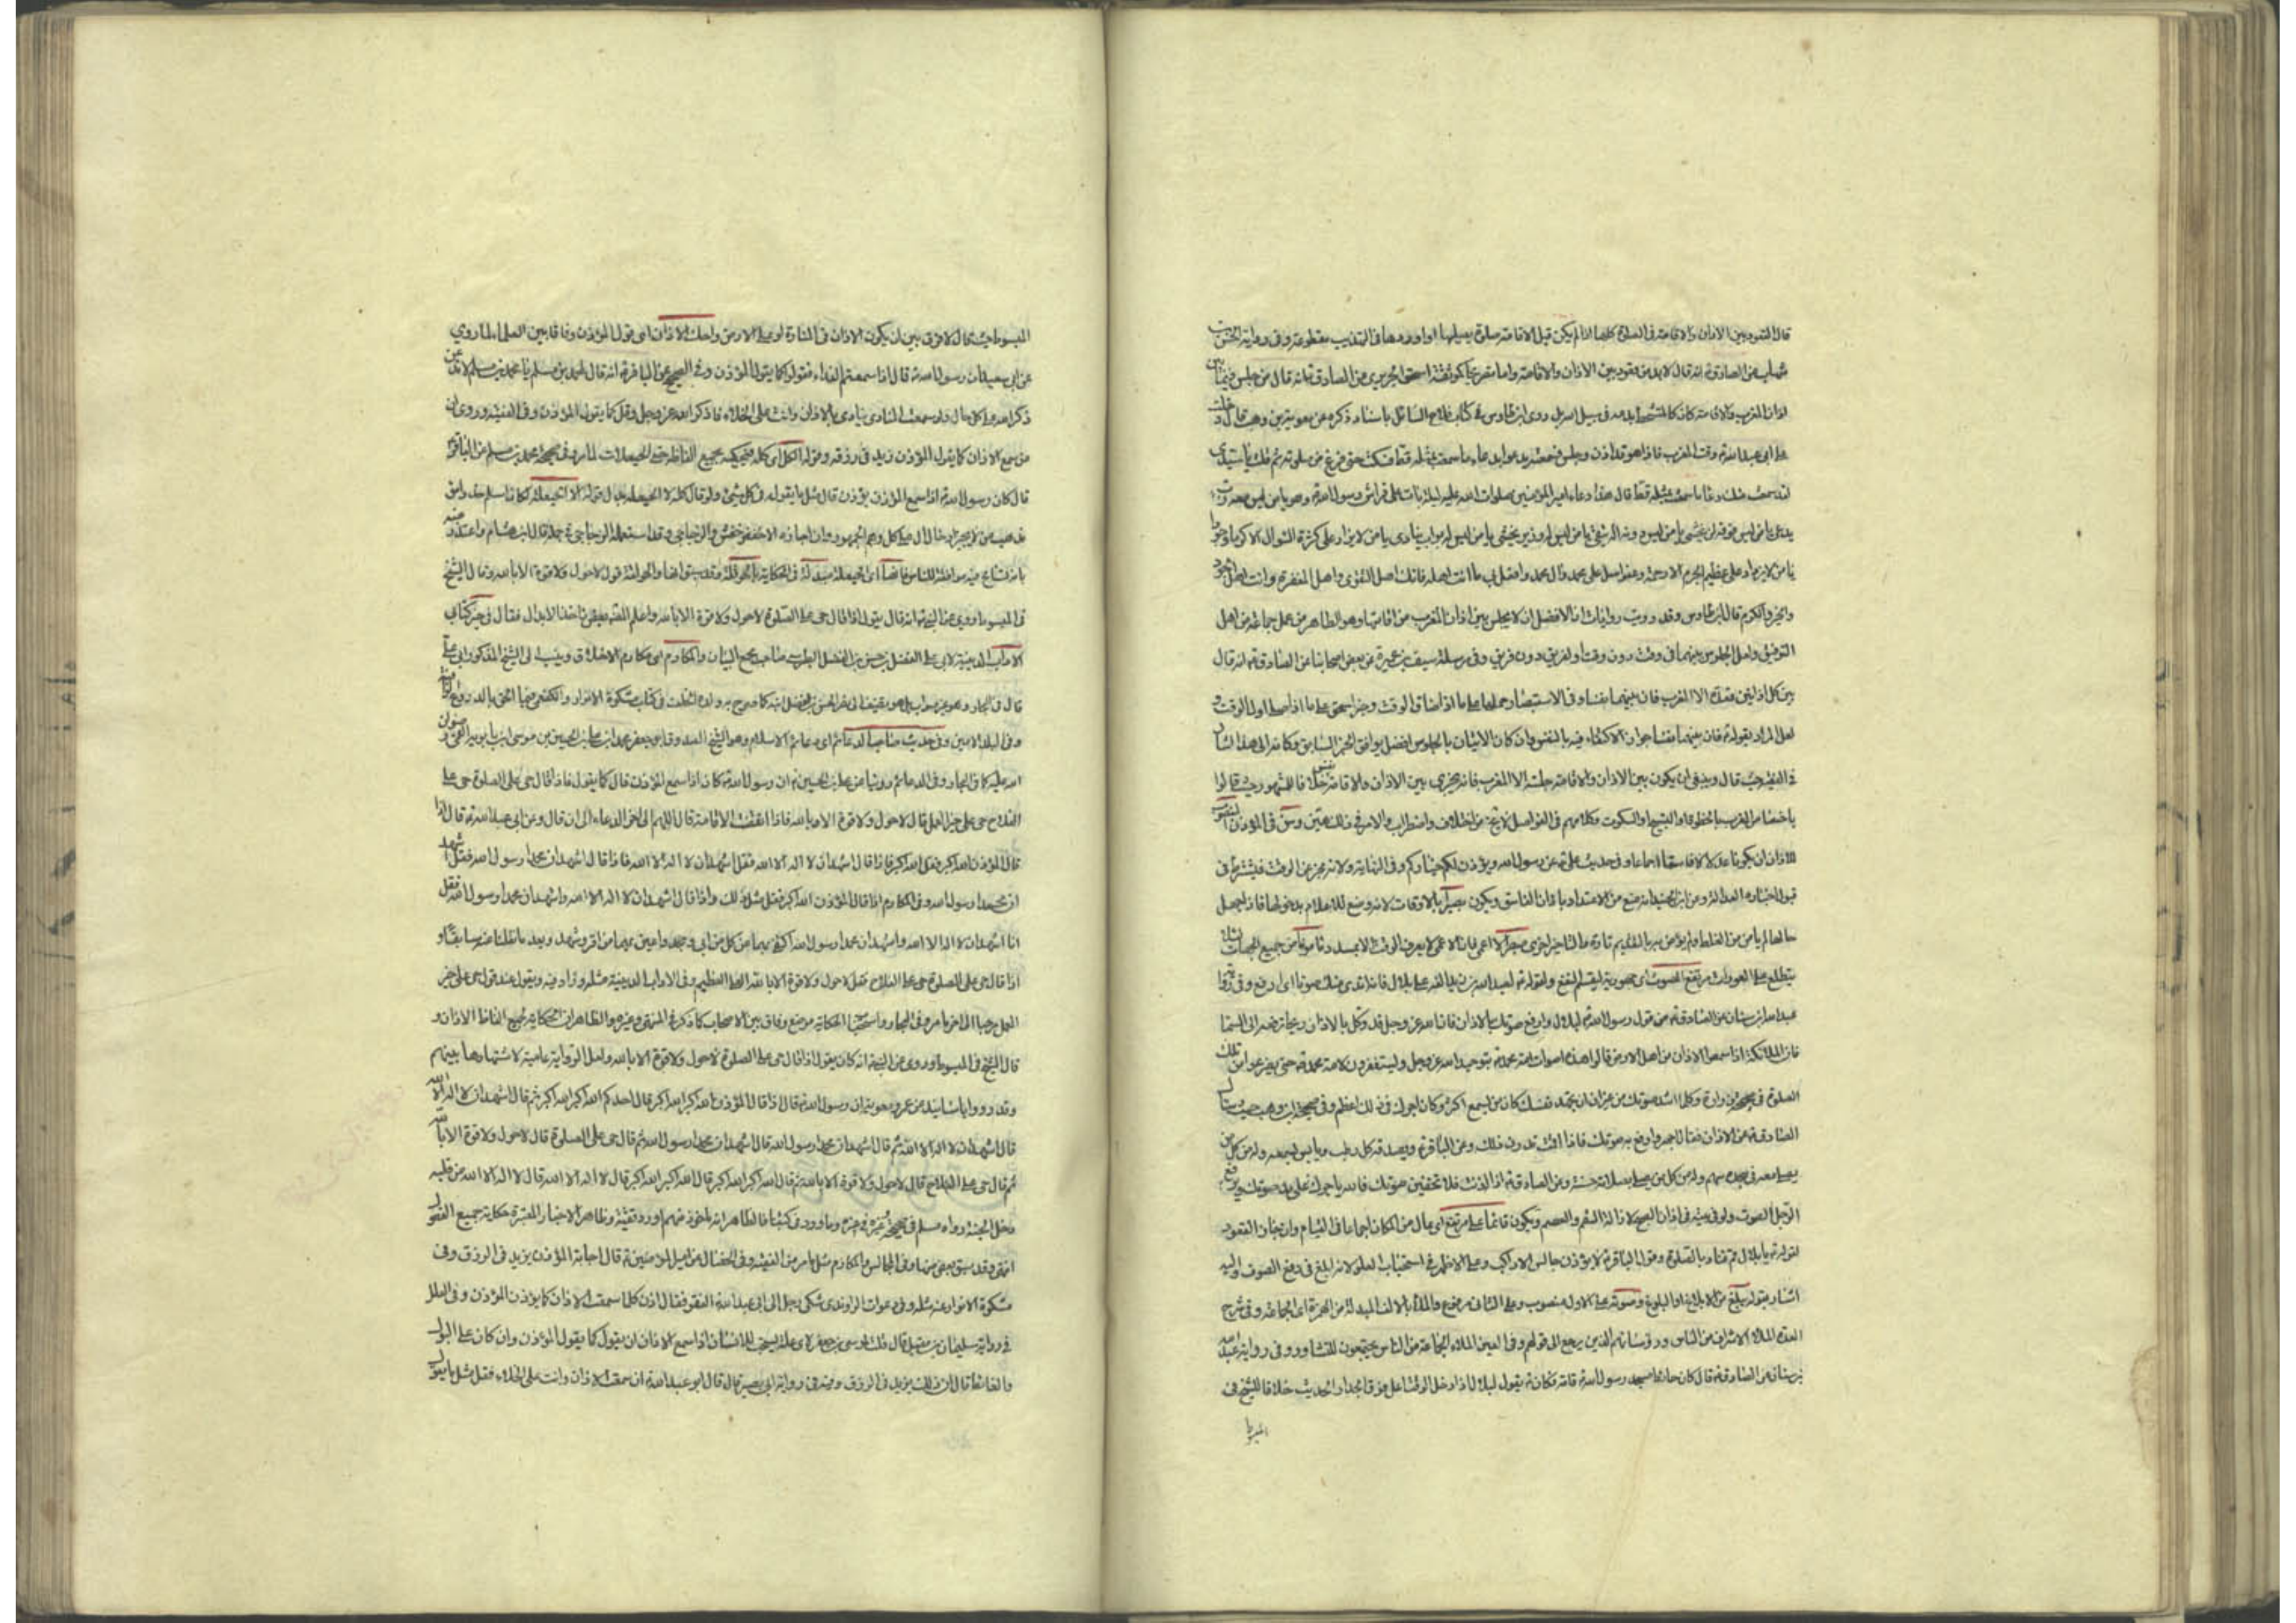 قال القعود بين الاذان والاقامة فى الصلوة كلها اذا لم يكن قبل الاقامة صلوة يصليها اوردوها فى التهذيب مقطوعة وفى رواية الحسن بن
شهاب عن الصادق ع انه قال لابد من قعود بين الاذان والاقامة واما اسحق الجريرى عن الصادق ع انه قال من جلس فيما بين
اذان المغرب والاقامة كان كالمتشحط بدمه فى سبيل الله بل روى ابن طاوس فى كتاب فلاح السائل باسناد ذكره عن معوية بن وهب قال دخلت
على ابى عبد الله ع وقت المغرب فاذا هو قد اذن وجلس فسمعته يدعو بدعاء ما سمعت بمثله قط فسكت حتى فرغ من صلوته ثم قلت يا سيدى
لقد سمعت منك دعاء ما سمعت بمثله قط قال هذا دعاء امير المؤمنين صلوات الله عليه ليلة بات على فراش رسول الله ص وهو يا من ليس معه رب
يدعى يا من ليس فوقه اله يخشى يا من ليس دونه اله يتقى يا من ليس له وزير يغشى يا من ليس له بواب ينادى يا من لا يزداد على كثرة السؤال الا كرما وجودا
يا من لا يزداد على عظيم الجرم الا رحمة وعفوا صل على محمد وال محمد وافعل بى ما انت اهله فانك اهل التقوى واهل المغفرة وانت اهل الجود
والخير والكرم قال ابن طاوس وقد رويت روايات ان الافضل ان لا يجلس بين اذان المغرب من اقامتها وهو الظاهر من عمل جماعة من اهل
التوفيق ولعل الجلوس بينهما فى وقت دون وقت او لفريق دون فريق وفى مرسلة سيف بن عميرة عن بعض اصحابنا عن الصادق ع انه قال
بين كل اذانين قعدة الا المغرب فان بينهما نفسا وفى الاستبصار حملها على ما اذا ضاق الوقت وخبر اسحق على ما اذا صلى اول الوقت و
لعل المراد بقوله ع فان بينهما نفسا جواز الاكتفاء فيه بالنفس وان كان الاتيان بالجلوس افضل يوافق الخبر السابق وكانه الى هذا اشار
فى الفقيه حيث قال وينبغى ان يكون بين الاذان والاقامة جلسة الا المغرب فانه يجزى بين الاذان والاقامة نفس خلافا للمشهور حيث قالوا
باختصاص المغرب بالخطوة او التسبيح او السكوت وكلامهم فى الفواصل لا يخ من اختلاف واضطراب والامر فى ذلك هين وسن فى المؤذن المنصوب
للاذان ان يكون عدلا لا فاسقا اجماعا وفى حديث على ع عن رسول الله ويؤذن لكم خياركم وفى النهاية ولانه يخبر عن الوقت فيشترط فى
قبول اخباره العدالة وعن ابن الجنيد انه منع من الاعتداد باذان الفاسق ويكون بصيرا بالاوقات لانه وضع للاعلام بدخولها فاذا جهل
حالها لم يامن من الغلط ولم يؤمن به بالتقديم تارة والتاخير اخرى مبصرا لا اعمى فان الاعمى لا يعرف الوقت الا بمسدد ماموناً من جميع الجهات لئلا
يتطلع على العورات مرتفع الصوت اى جهورية ليعم النفع ولقوله ص لعبد الله بن زيد القه على بلال فانه اندى منك صوتا اى ارفع وفى
عبد الله بن سنان عن الصادق ع من قول رسول الله ص لبلال وارفع صوتك بالاذان فان الله عز وجل قد وكل بالاذان ريحا ترفعه الى السماء
فان الملائكة اذا سمعوا الاذان من اهل الارض قالوا هذه اصوات امة محمد ص بتوحيد الله عز وجل ويستغفرون لامة محمد ص حتى يفرغوا من تلك
الصلوة فى صحيحة زرارة وكلما اشتد صوتك من غير ان تجهد نفسك كان من يسمع اكثر وكان اجرك فى ذلك اعظم وفى صحيحة ابن وهب سال
الصادق ع عن الاذان فقال اجهر وارفع به صوتك فاذا اقمت فدون ذلك وعن الباقر ع ويصدقه كل رطب ويابس يسمعه وله من كل من
يصلى معه فى مسجده سهم وله من كل من يصلى بصلاته حسنة وعن الصادق ع اذا اذنت فلا تخفين صوتك فان الله ياجرك على مد صوتك ويرفع
الرجل الصوت ولو فى بيته فى اذان الصبح لازالة السقم والعصم ويكون قائما على مرتفع اى عال من المكان اجماعا فى القيام وان جاز القعود
لقوله ص يا بلال قم فناد بالصلوة وقول الباقر ع لا يؤذن جالس الا راكب وعلى الاظهر فى استحباب العلو لانه ابلغ فى رفع الصوت واليه
اشار بقوله يبلغ من الابلاغ او البلوغ وصوته على الاول منصوب وعلى الثانى مرفوع والملأ بالالف المبدلة من الهمزة اى الجماعة وفى شرح
العدة الملاء الاشراف من الناس ورؤساءهم الذين يرجع الى قولهم وفى العين الملاء الجماعة من الناس يجتمعون للتشاور وفى رواية عبد الله
بن سنان عن الصادق ع قال كان حائط مسجد رسول الله ص قامة فكان ص يقول لبلال اذا دخل الوقت اعل فوق الجدار الحديث خلافا للشيخ فى
المبسوط
المبسوط حيث قال لا فرق بين ان يكون الاذان فى المنارة او على الارض واحك الاذان اى قول المؤذن وفاقا بين العلماء لما روى
عن ابى سعيد ان رسول الله ص قال اذا سمعتم النداء فقولوا كما يقول المؤذن وفى الصحيح عن الباقر ع انه قال لمحمد بن مسلم يا محمد بن مسلم لا تدعن
ذكر الله على كل حال ولو سمعت المنادى ينادى بالاذان وانت على الخلاء فاذكر الله عز وجل وقل كما يقول المؤذن وفى الفقيه وروى ان
من سمع الاذان كما يقول المؤذن زيد فى رزقه وقوله الكل اى كله فيحكيه بجميع الفاظه حتى الحيعلات لما روى فى صحيحة محمد بن مسلم عن الباقر ع
قال كان رسول الله ص اذا سمع المؤذن يؤذن قال مثل ما يقوله فى كل شئ ولو قال كله لا الحيعلة بدل قوله الا الحيعلة لكان اسلم
مذهب من لم يجز ادخال ال على كل وهم الجمهور وان اجازه الاخفش والزجاجى وقد استعمله الزجاجى فى جمله قال ابن هشام واعتذر عنه
بانه تسامح فيه موافقة للناس فانها اى الحيعلة مبدلة فى الحكاية بالحوقلة وقد سبق انها والحولقة قول لا حول ولا قوة الا بالله وقال الشيخ
فى المبسوط روى عن النبى ص انه قال يقول اذا قال حى على الصلوة لا حول ولا قوة الا بالله واعلم انه بقى ماخذ الابدال فقال فى خبر كتابى
الاداب الدينية لابى على الفضل بن حسن بن الفضل الطبرسى صاحب مجمع البيان والمكارم اى مكارم الاخلاق وينسب الى الشيخ المذكور ابى على
قال فى البحار وهو غير صواب بل هو تصنيف ابى نصر الحسن بن الفضل ابنه كما صرح به ولده الخلف فى كتاب مشكوة الانوار والكفعمى فيما الحق بالدروع الواقية
وفى البلد الامين وفى حديث صاحب الدعائم اى دعائم الاسلام وهو الشيخ الصدوق ابو جعفر محمد ابن على بن الحسين بن موسى ابن بابويه القمى رضوان
الله عليه كما فى البحار وفى الدعائم روينا عن على بن الحسين ع ان رسول الله ص كان اذا سمع المؤذن قال كما يقول فاذا قال حى على الصلوة حى على
الفلاح حى على خير العمل قال لا حول ولا قوة الا بالله فاذا انقضت الاقامة قال اللهم الى اخر الدعاء الى ان قال وعن ابى عبد الله ع قال اذا
قال المؤذن الله اكبر فقل الله اكبر فاذا قال اشهد ان لا اله الا الله فقل اشهد ان لا اله الا الله فاذا قال اشهد ان محمدا رسول الله فقل اشهد
ان محمدا رسول الله وفى المكارم اذا قال المؤذن الله اكبر فقل مثل ذلك واذا قال اشهد ان لا اله الا الله واشهد ان محمدا رسول الله فقل
انا اشهد ان لا اله الا الله واشهد ان محمدا رسول الله اكتفى بهما عن كل من ابى وجحد واعين بهما من اقر وشهد وبعد ما نقلنا عنه سابقا و
اذا قال حى على الصلوة حى على الفلاح فقل لا حول ولا قوة الا بالله العلى العظيم وفى الاداب الدينية مثله وزاد فيه ويقول عند قول حى على خير
العمل مرحبا الى اخر ما مر وفى البحار واستحباب الحكاية موضع وفاق بين الاصحاب كما ذكر فى المنتهى وغيره والظاهران الحكاية لجميع الفاظ الاذان و
قال الشيخ فى المبسوط وروى عن النبى ص انه كان يقول اذا قال حى على الصلوة لا حول ولا قوة الا بالله ولعل الرواية عامية لاشتهارها بينهم
وقد رووا باسانيد عن عمر ومعوية ان رسول الله ص قال اذا قال المؤذن الله اكبر الله اكبر قال احدكم الله اكبر الله اكبر ثم قال اشهد ان لا اله الا الله
قال اشهد ان لا اله الا الله ثم قال اشهد ان محمدا رسول الله قال اشهد ان محمدا رسول الله ثم قال حى على الصلوة قال لا حول ولا قوة الا بالله
ثم قال حى على الفلاح قال لا حول ولا قوة الا بالله ثم قال الله اكبر الله اكبر قال الله اكبر الله اكبر قال لا اله الا الله قال لا اله الا الله من قلبه
دخل الجنة رواه مسلم فى صحيحه وغيره وما ورد فى كتبنا فالظاهر انه ماخوذ منهم او ورد تقية وظاهر الاخبار المعتبرة حكاية جميع الفصول
انتهى وقد سبق بعض منها وفى المجالس والمكارم مثل ما مر من الفقيه وفى الخصال عن امير المؤمنين ع قال اجابة المؤذن يزيد فى الرزق وفى
مشكوة الانوار عنه مثله وفى دعوات الراوندى شكى رجل الى ابى عبد الله ع الفقر فقال اذن كلما سمعت الاذان كما يؤذن المؤذن وفى العلل
فى رواية سليمان بن مقبل قال قلت لموسى بن جعفر ع لاى علة يستحب للانسان اذا سمع الاذان ان يقول كما يقول المؤذن وان كان على البول
والغائط قال لان ذلك يزيد فى الرزق وفيه فى رواية ابى بصير قال قال ابو عبد الله ع ان سمعت الاذان وانت على الخلاء فقل مثل ما يقول